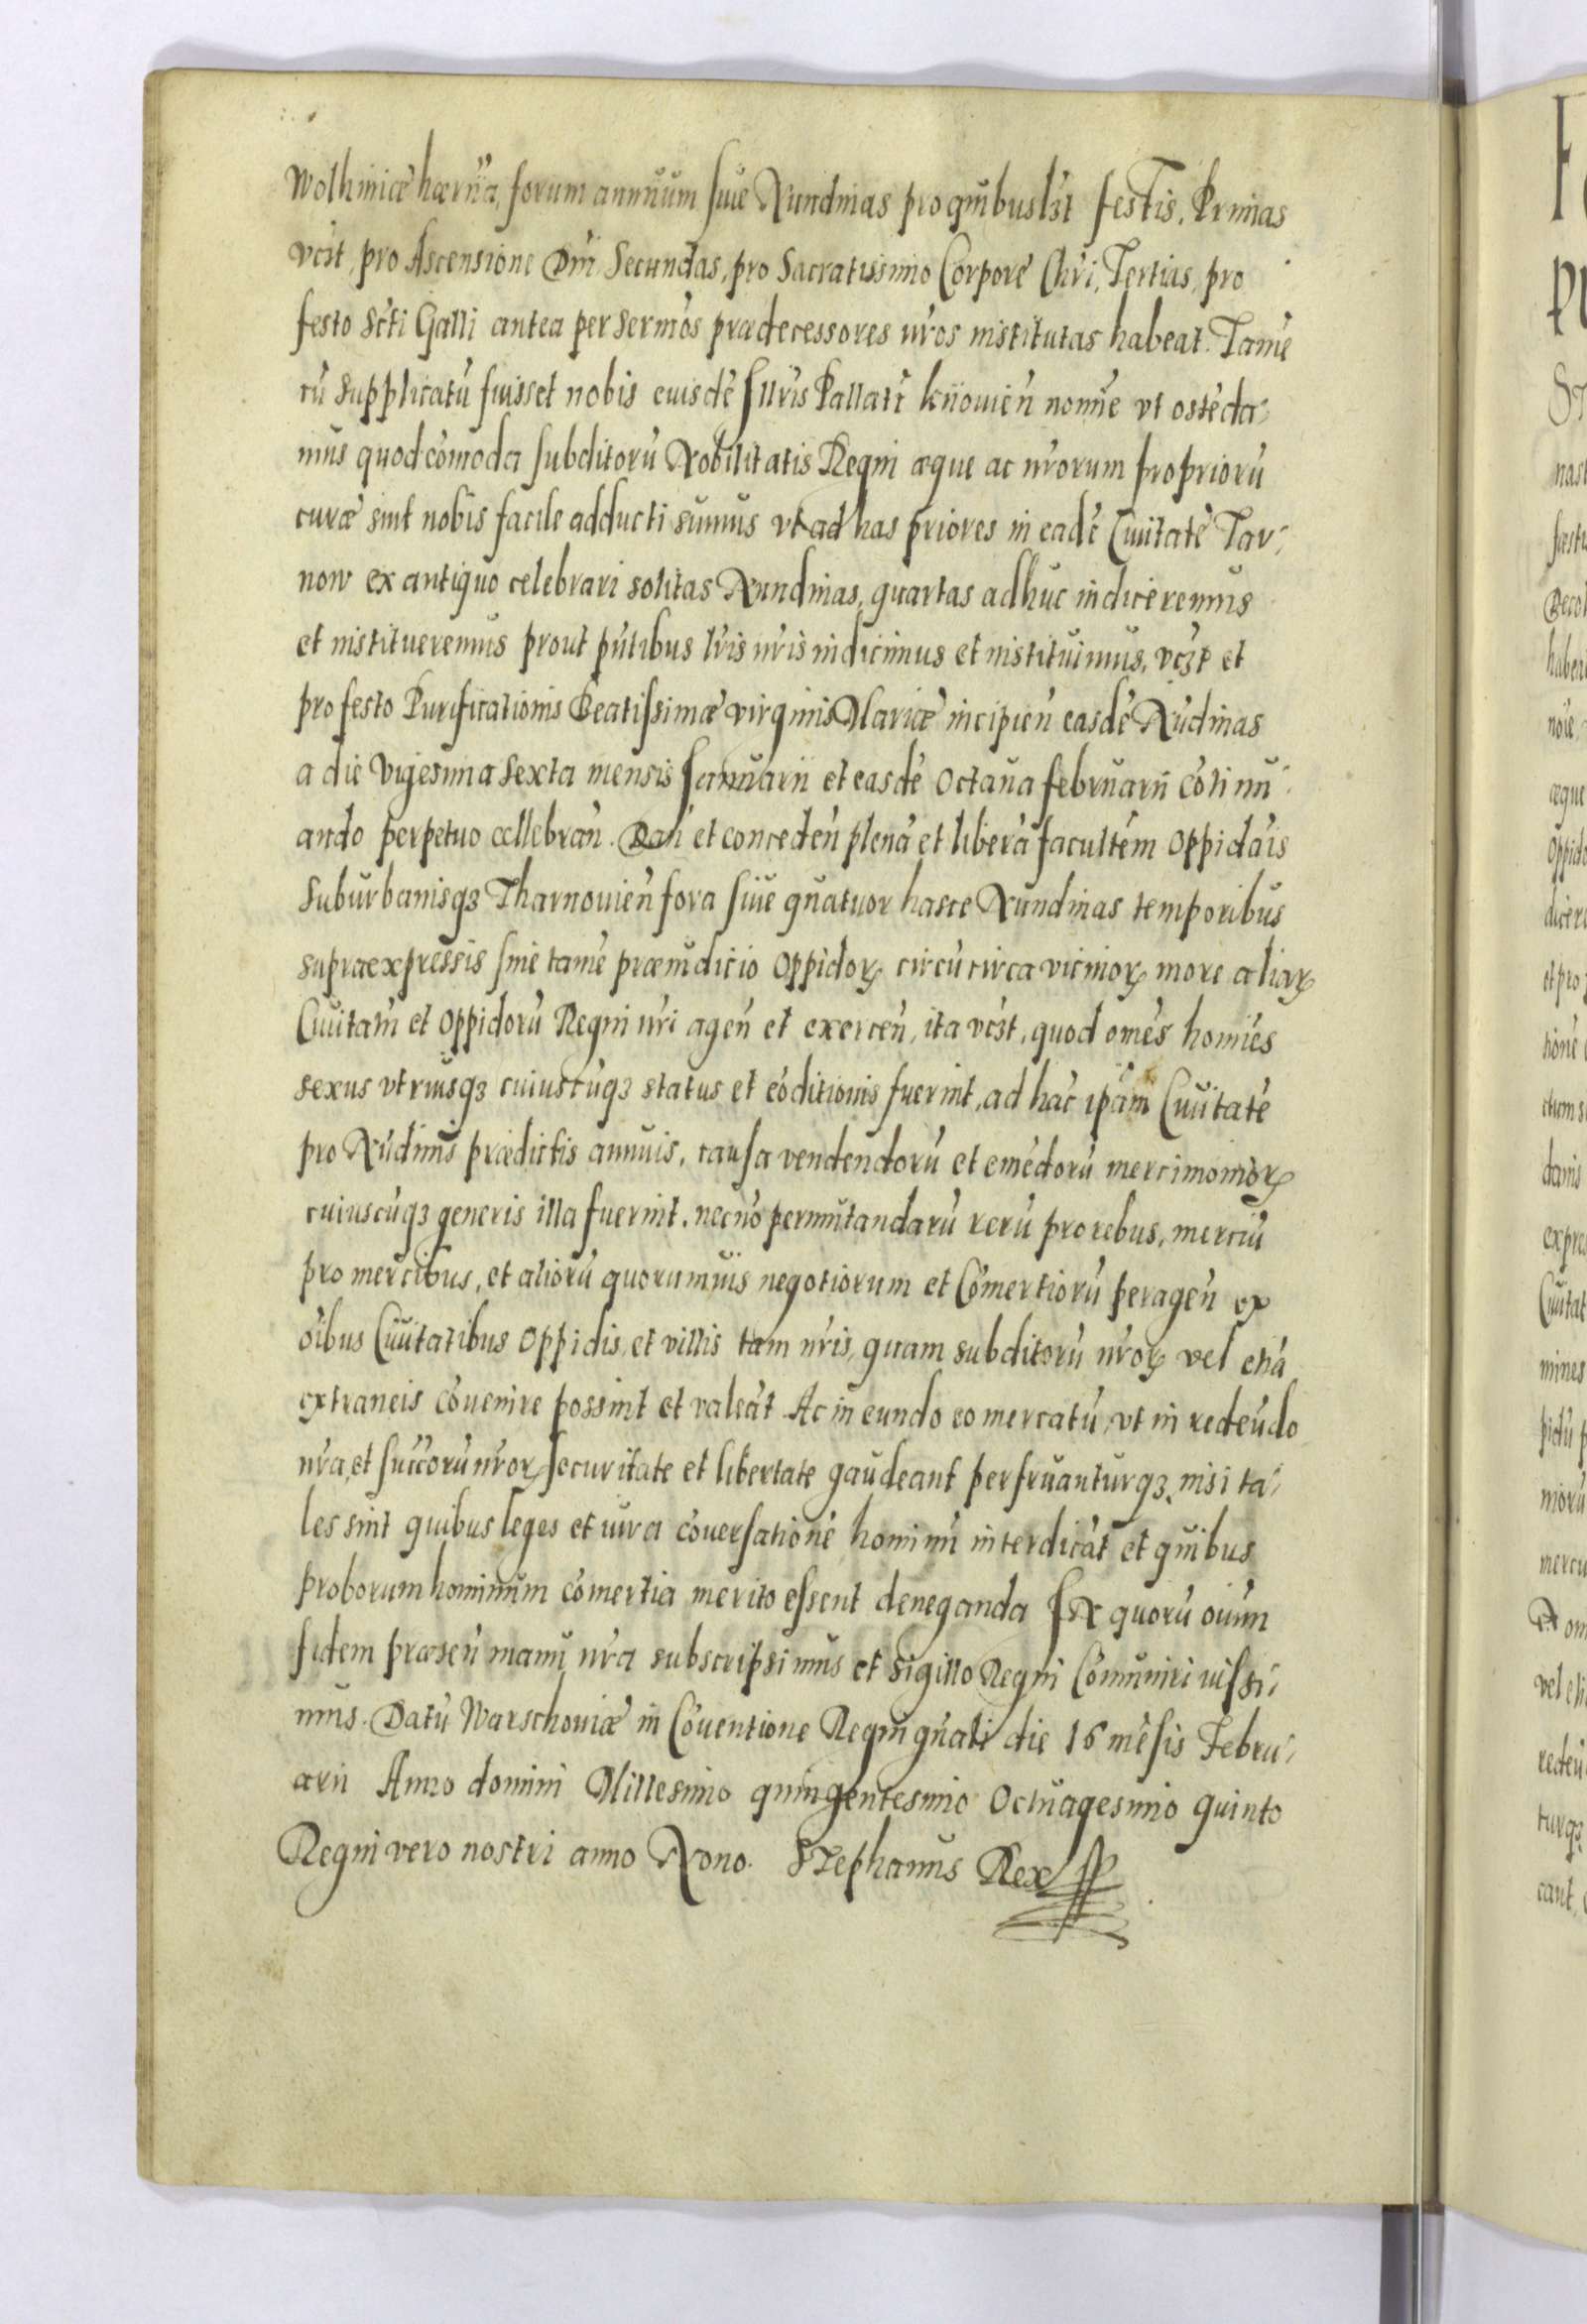 Wolhiniæ hæren̄a, forum annuum siue Nundinas pro quibuslz̄t festis, Primas
vcz̄t pro Ascensione Dn̄i Secundas, pro Sacratissimo Corpore Chrī, Tertias, pro
festo Sctī Galli antea per Sermōs prædecessores nr̄os institutas habeat. Tamē
cū supplicatū fuisset nobis euisdē Illr̄is Pallatī kiiouien̄ nomīe vt ostēda-
mus quod cōmoda subditorū Nobilitatis Regni æque ac nr̄orum propriorū
curæ sint nobis facile adducti sumus vt ad has priores in eadē Ciuitatē Tar-
now ex antiquo celebrari solitas Nundinas, quartas adhuc indiceremus
et institueremus prout pn̄tibus lr̄is nr̄is indicimus et instituimus, vcz̄t et
pro festo Purificationis Beatissimæ virginis Mariæ incipien̄ easdē Nūdinas
a die Vigesima sexta mensis Januarii et easdē Octaua februarii cōtinu-
ando perpetuo cællebran̄. Dan̄ et conceden̄ plenā et liberā facultēm Oppidāis
Suburbanisqꝫ Tharnouien̄ fora siue quatuor hasce Nundinas temporibus
supraexpressis sine tamē præiudicio Oppidoꝝ circū circa vicinioꝝ more aliaꝝ
Ciuitatm̄ et Oppidorū Regni nr̄i agen̄ et exercen̄, ita vcz̄t, quod omēs homīes
sexus vtriusqꝫ cuiuscūqꝫ status et cōditionis fuerint, ad hāc ipām Ciuitatē
pro Nūdinis prædictis annuis, causa vendendorū et emēdorū mercimonioꝝ
cuiuscūqꝫ generis illa fuerint, necnō permutandarū rerū pro rebus, merciū
pro mercibus, et aliorū quorumuis negotiorum et Cōmertiorū peragen̄ ex
oībus Ciuitatibus Oppidis, et villis tam nr̄is, quam subditorū nr̄oꝝ vel etiā
extraneis cōuenire possint et valeāt Ac in eundo eo mercatū, vt in redeūdo
nr̄a, et succorū nr̄oꝝ securitate et libertate gaudeant perfruanturqꝫ, nisi ta-
les sint quibus leges et iura cōuersationē hominū interdicāt et quibus
proborum hominum cōmertia merito essent deneganda In quorū oīum
fidem præsen̄ manu nr̄a subscripsimus et Sigillo Regni Cōmuniri iussi-
mus. Datū Warschouiæ in Cōuentione Regni gn̄ali die 16 mēsis Febru-
arii Anno domini Millesimo quingentesimo Octuagesimo quinto
Regni vero nostri anno Nono. Stephanus Rex